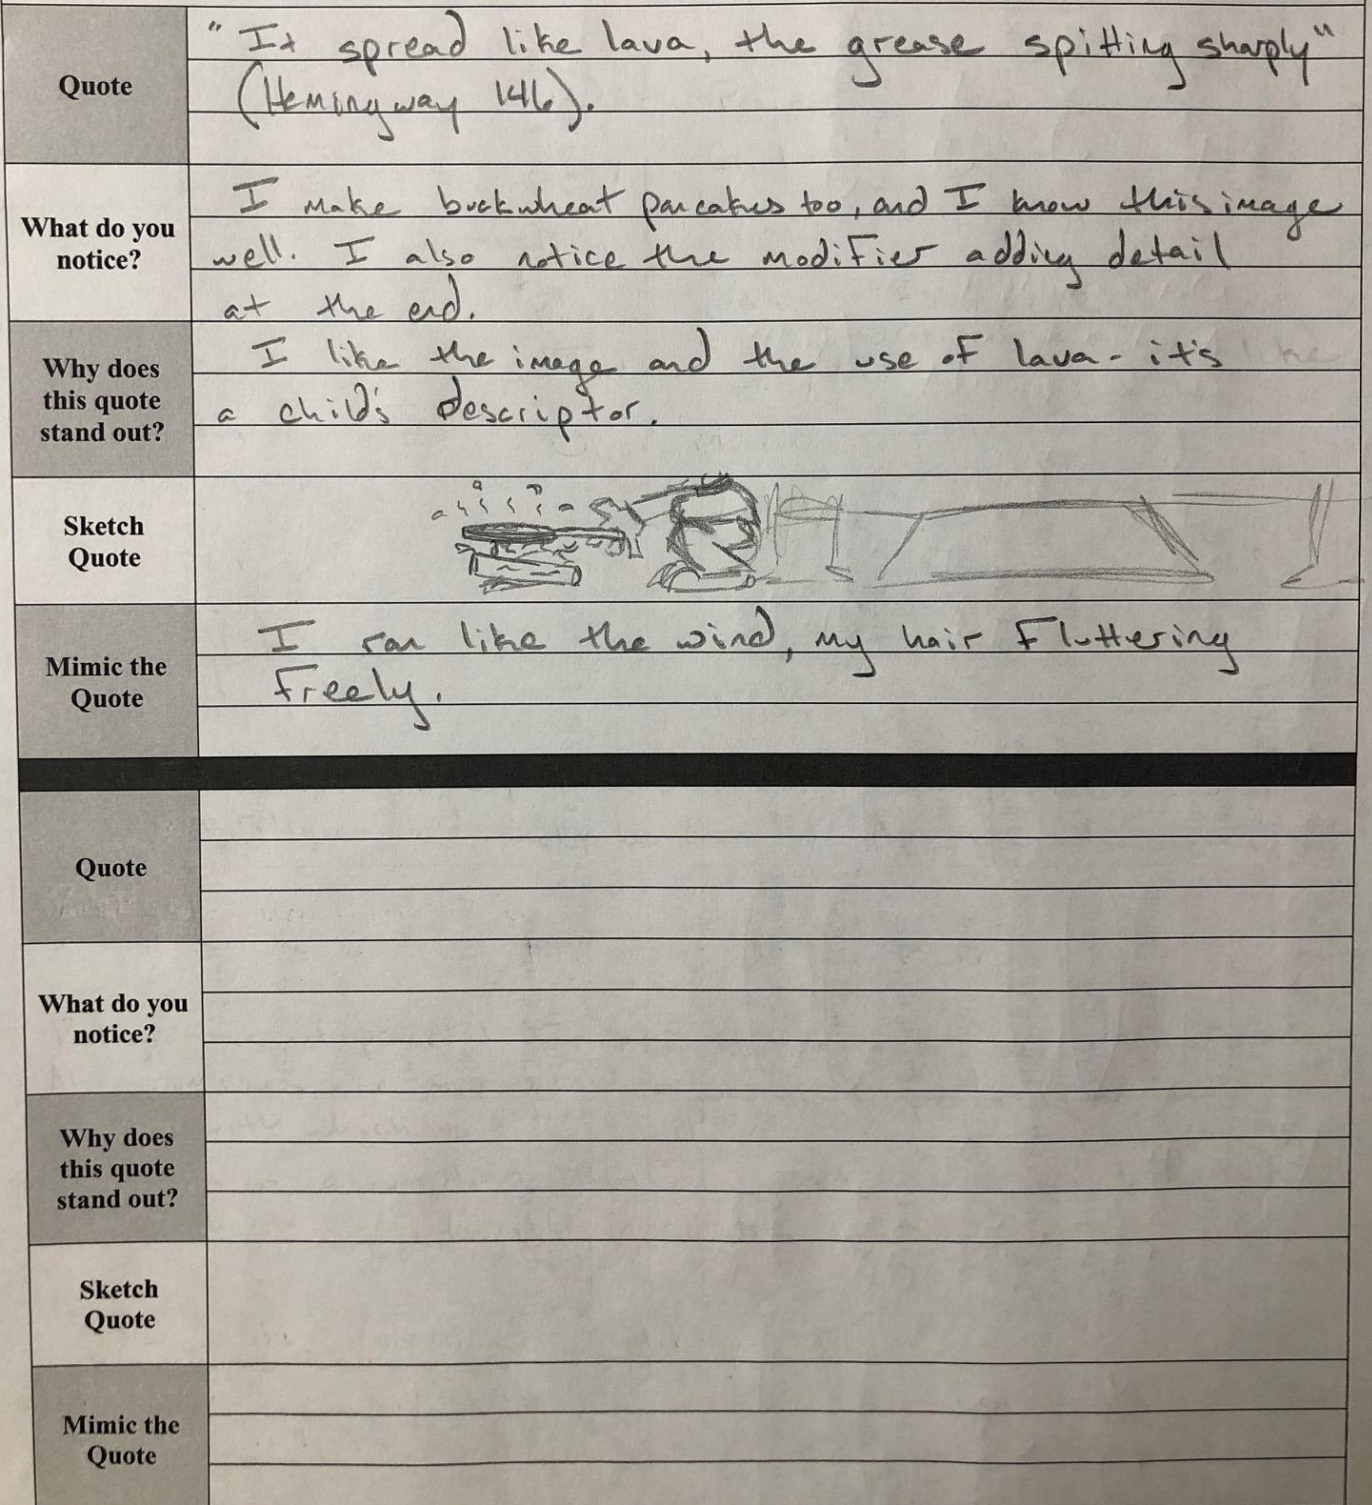 Quote
"It spread like lava, the grease spitting sharply"
(Hemingway 146).
What do you
notice?
I make buckwheat pancakes too, and I know this image
well. I also notice the modifier adding detail
at the end.
Why does
this quote
stand out?
I like the image and the use of lava - it's
a child's descriptor.
Sketch
Quote
Mimic the
Quote
I ran like the wind, my hair fluttering
freely.
Quote
What do you
notice?
Why does
this quote
stand out?
Sketch
Quote
Mimic the
Quote